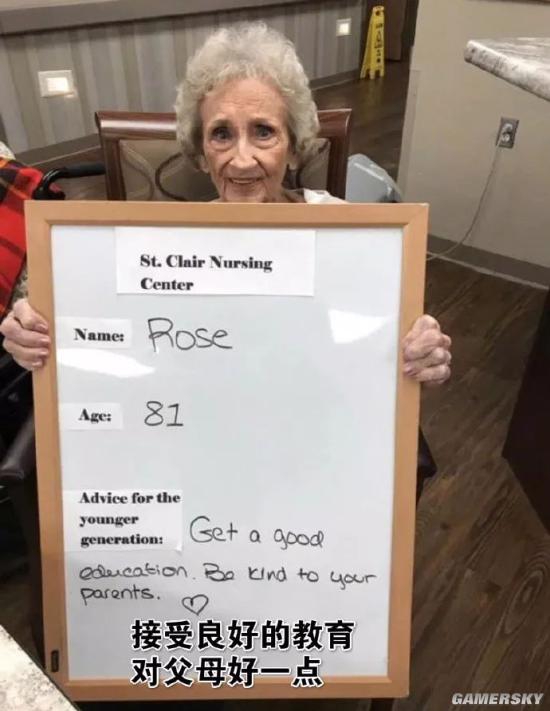 St. Clair Nursing
Center
Name: Rose
Age: 81
Advice for the
younger
generation: Get a good
education. Be kind to your
parents. ♡
接受良好的教育
对父母好一点
GAMERSKY